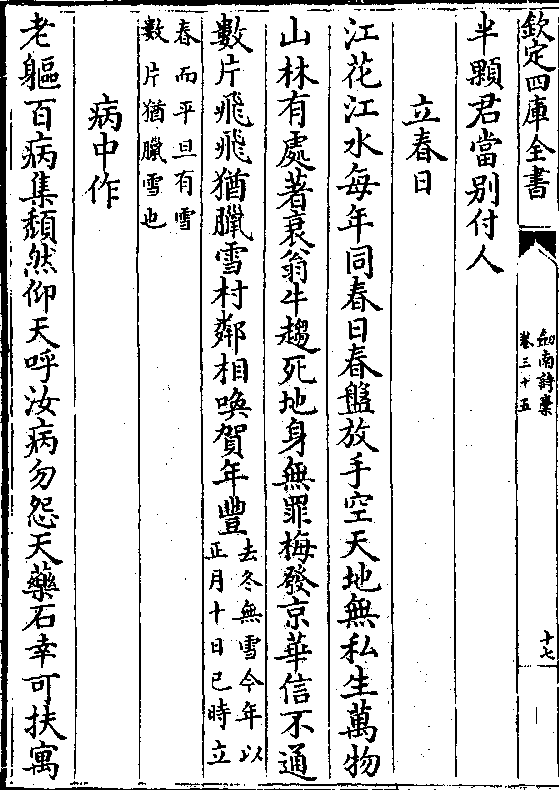 欽定四庫全書
劍南詩藁
卷三十五
十七
半顆君當别付人
立春日
江花江水每年同春日春盤放手空天地無私生萬物
山林有處著衰翁牛趨死地身無罪梅發京華信不通
數片飛飛猶臘雪村鄰相喚賀年豐
去冬無雪今年以
正月十日巳時立
春而平旦有雪
數片猶臘雪也
病中作
老軀百病集頽然仰天呼汝病勿怨天藥石幸可扶寓